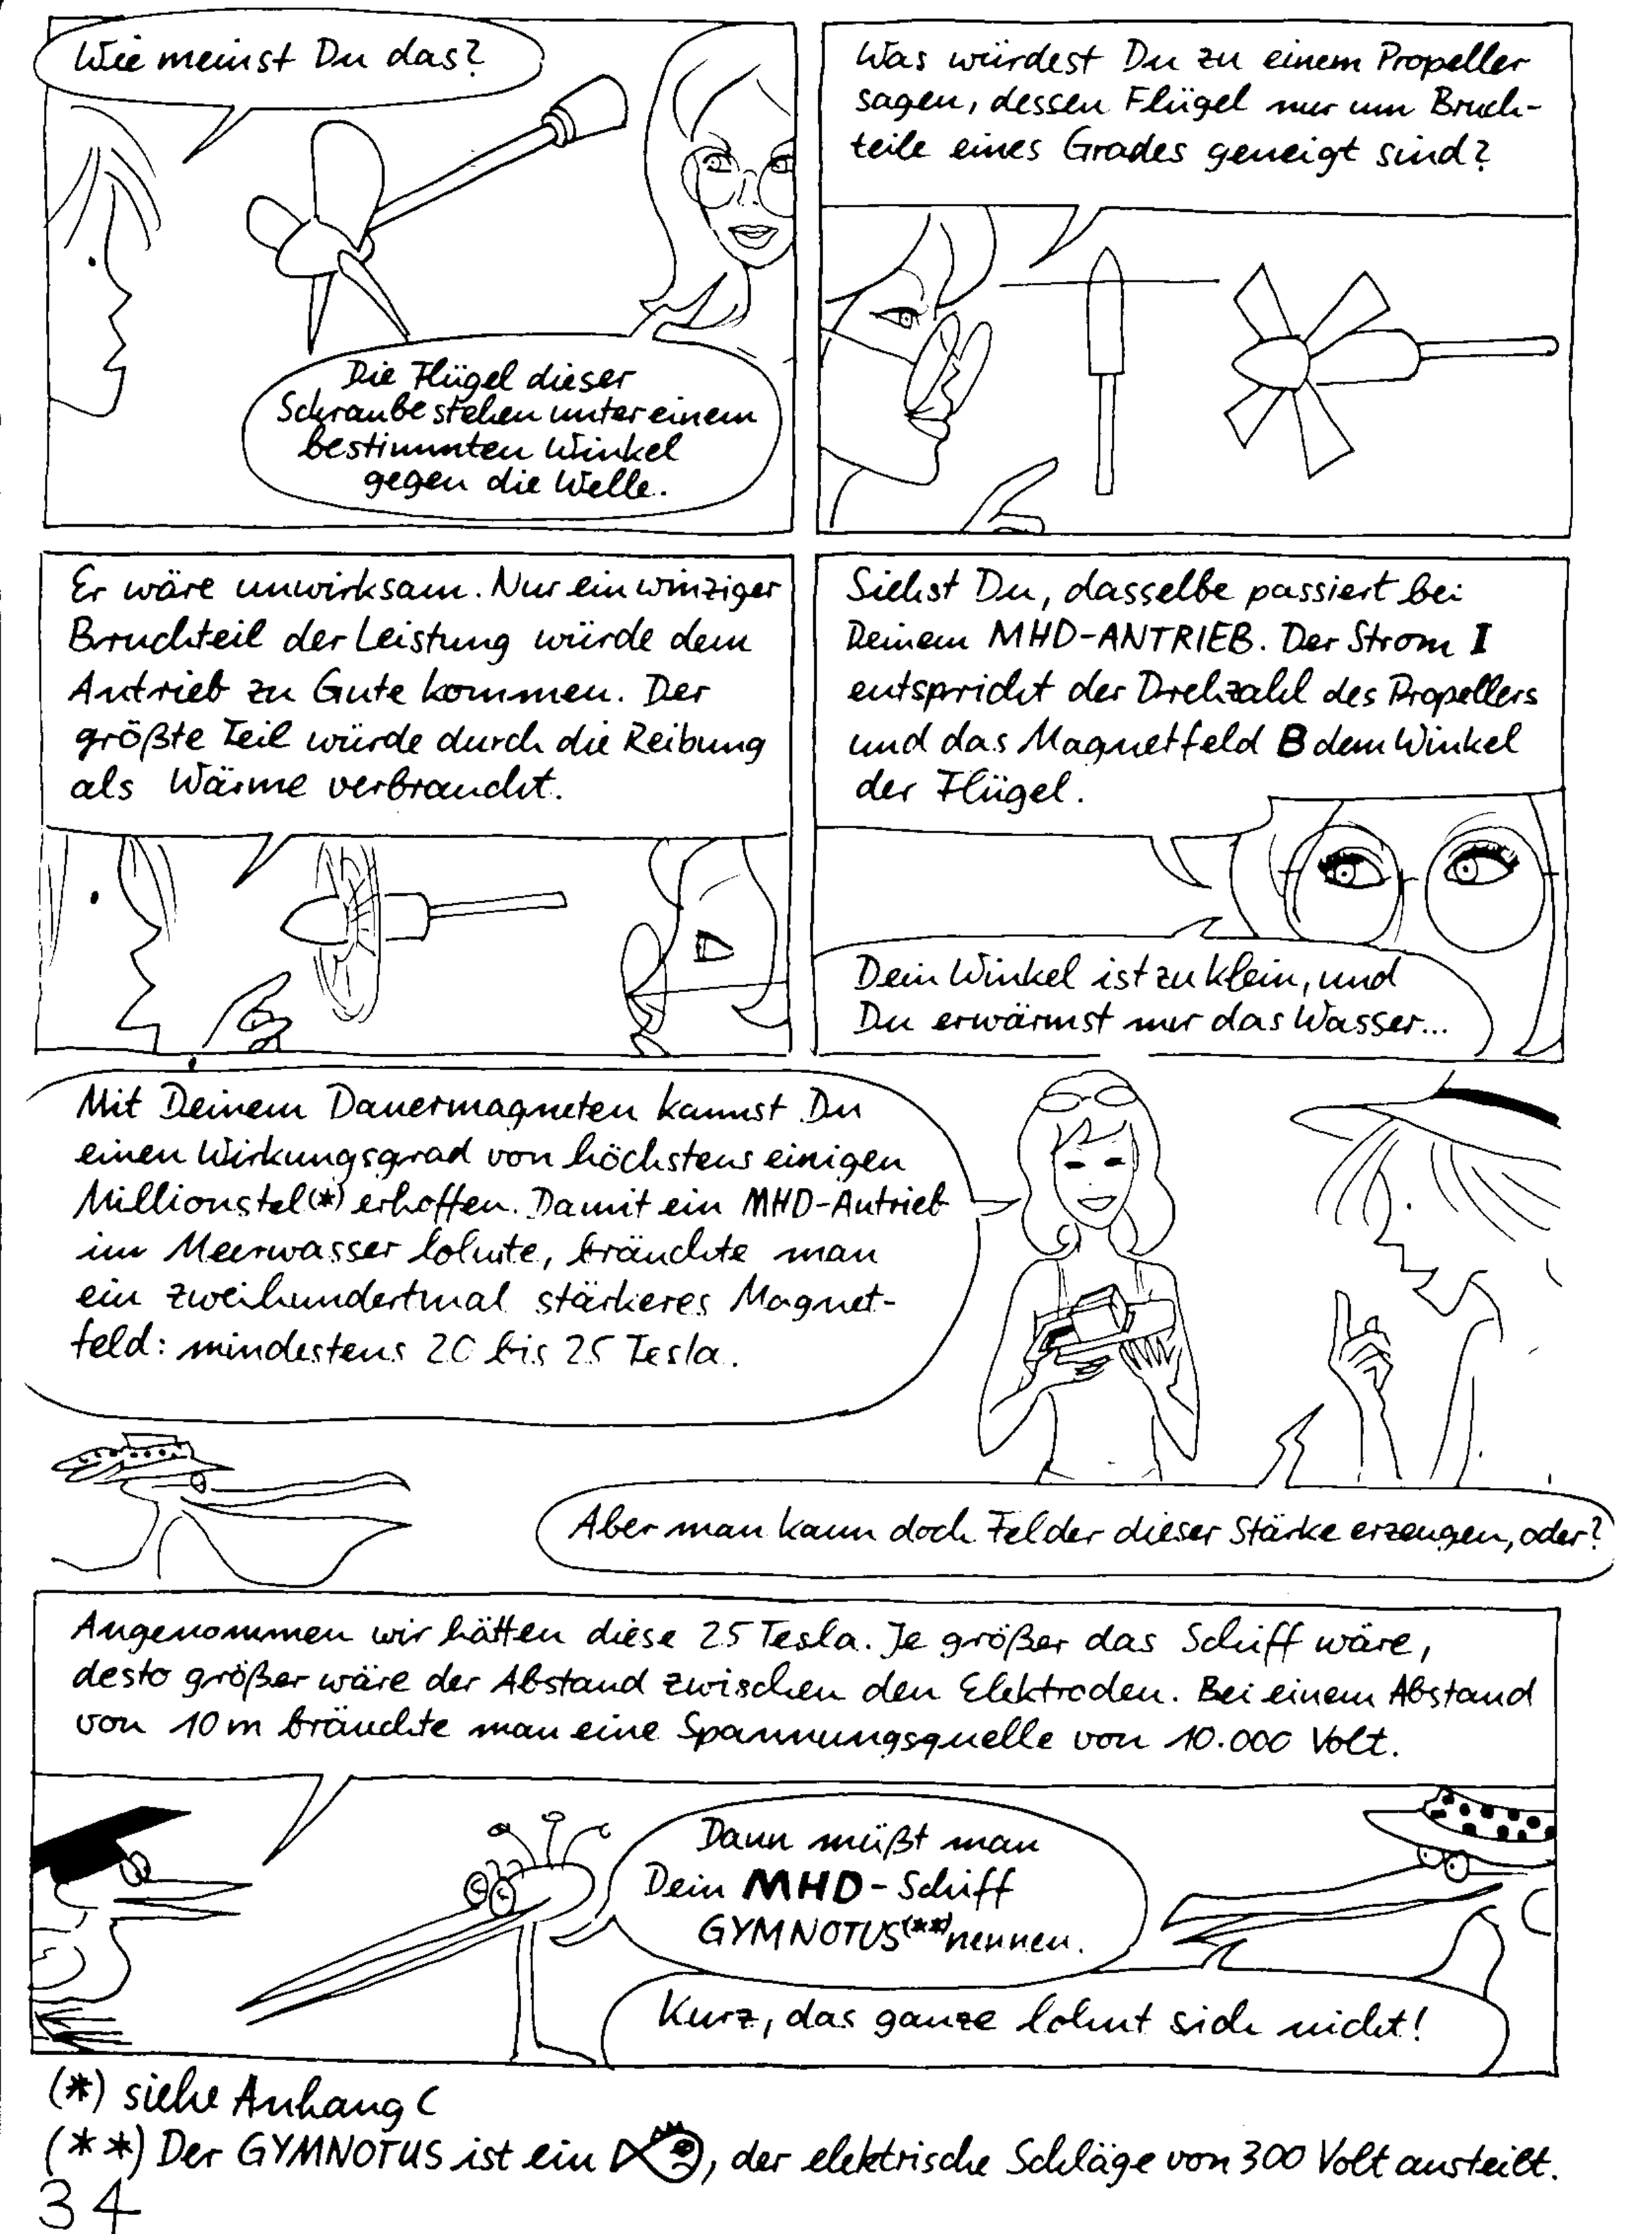 Wie meinst Du das?
Die Flügel dieser
Schraube stehen unter einem
bestimmten Winkel
gegen die Welle.
Was würdest Du zu einem Propeller
sagen, dessen Flügel nur um Bruch-
teile eines Grades geneigt sind?
Er wäre unwirksam. Nur ein winziger
Bruchteil der Leistung würde dem
Antrieb zu Gute kommen. Der
größte Teil würde durch die Reibung
als Wärme verbraucht.
Siehst Du, dasselbe passiert bei
Deinem MHD-ANTRIEB. Der Strom I
entspricht der Drehzahl des Propellers
und das Magnetfeld B dem Winkel
der Flügel.
Dein Winkel ist zu klein, und
Du erwärmst nur das Wasser...
Mit Deinem Dauermagneten kannst Du
einen Wirkungsgrad von höchstens einigen
Millionstel(*) erhoffen. Damit ein MHD-Antrieb
im Meerwasser lohnte, bräuchte man
ein zweihundertmal stärkeres Magnet-
feld: mindestens 20 bis 25 Tesla.
Aber man kann doch Felder dieser Stärke erzeugen, oder?
Angenommen wir hätten diese 25 Tesla. Je größer das Schiff wäre,
desto größer wäre der Abstand zwischen den Elektroden. Bei einem Abstand
von 10 m bräuchte man eine Spannungsquelle von 10.000 Volt.
Dann müßt man
Dein MHD-Schiff
GYMNOTUS(**) nennen.
Kurz, das ganze lohnt sich nicht!
(*) siehe Anhang C
(**) Der GYMNOTUS ist ein , der elektrische Schläge von 300 Volt austeilt.
34